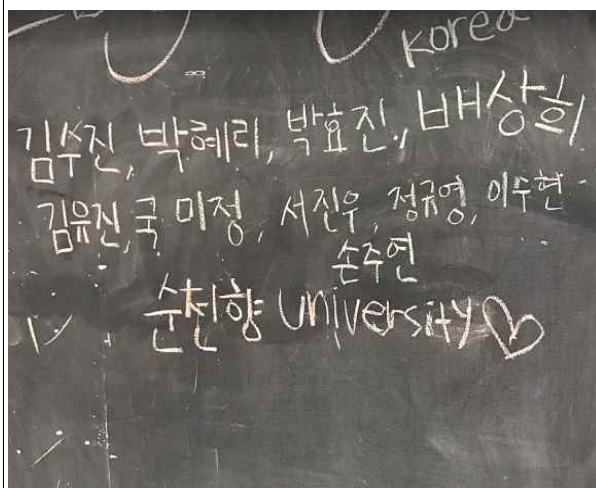 Korea
김수진, 박혜리, 박효진, 배상희
김유진, 국미정, 서진우, 정규영, 이수현
손주연
순천향 university♡